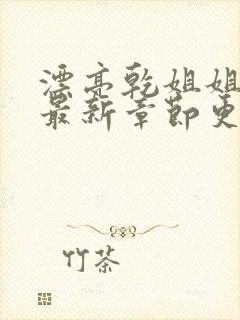 漂亮乾姐姐
最新章节更
竹茶